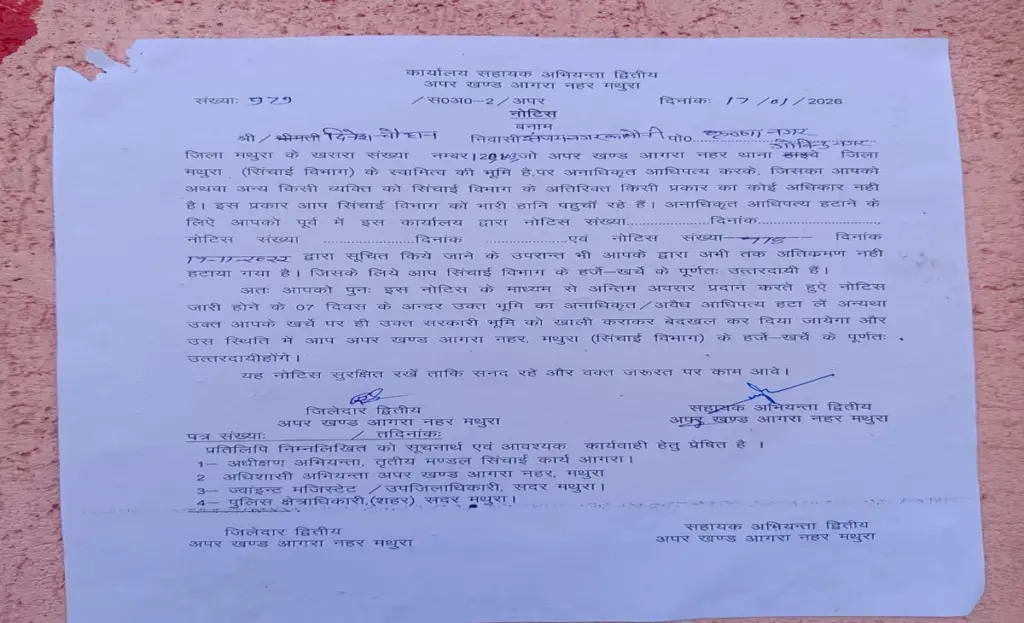 कार्यालय सहायक अभियन्ता द्वितीय
अपर खण्ड आगरा नहर मथुरा
संख्याः 979 /स0अ0–2/अपर दिनांकः 17/01/2026
नोटिस
बनाम
श्री/श्रीमती दिनेश चौहान निवासी संजय नगर कलौनी पो0 कृष्णा नगर
जिला मथुरा के खसरा संख्या नम्बर जो अपर खण्ड आगरा नहर थाना गोविन्द नगर जिला
मथुरा (सिंचाई विभाग) के स्वामित्व की भूमि है,पर अनाधिकृत आधिपत्य करके, जिसका आपको
अथवा अन्य किसी व्यक्ति को सिंचाई विभाग के अतिरिक्त किसी प्रकार का कोई अधिकार नही
है। इस प्रकार आप सिंचाई विभाग को भारी हानि पहुचॉ रहे हैं। अनाधिकृत आधिपत्य हटाने के
लिऐ आपको पूर्व में इस कार्यालय द्वारा नोटिस संख्या....................दिनांक..............................
नोटिस संख्या ......................दिनांक ....................एवं नोटिस संख्या 778 दिनांक
17-11-2022 द्वारा सूचित किये जाने के उपरान्त भी आपके द्वारा अभी तक अतिकमण नही
हटाया गया है। जिसके लिये आप सिंचाई विभाग के हर्जे–खर्चे के पूर्णतः उत्तरदायी हैं।
अतः आपको पुनः इस नोटिस के माध्यम से अन्तिम अवसर प्रदान करते हुऐ नोटिस
जारी होने के 07 दिवस के अन्दर उक्त भूमि का अनाधिकृत/अवैध आधिपत्य हटा लें अन्यथा
उक्त आपके खर्चे पर ही उक्त सरकारी भूमि को खाली कराकर बेदखल कर दिया जायेगा और
उस स्थिति में आप अपर खण्ड आगरा नहर, मथुरा (सिंचाई विभाग) के हर्जे–खर्चे के पूर्णतः
उत्तरदायीहोंगे।
यह नोटिस सुरक्षित रखें ताकि सनद रहे और वक्त जरूरत पर काम आवे।
जिलेदार द्वितीय सहायक अभियन्ता द्वितीय
अपर खण्ड आगरा नहर मथुरा अपर खण्ड आगरा नहर मथुरा
पत्र संख्याः / तदिनांकः
प्रतिलिपि निम्नलिखित को सूचनार्थ एवं आवश्यक कार्यवाही हेतु प्रेषित है ।
1– अधीक्षण अभियन्ता, तृतीय मण्डल सिंचाई कार्य आगरा।
2 अधिशासी अभियन्ता अपर खण्ड आगरा नहर, मथुरा
3– ज्वांइन्ट मजिस्टेट /उपजिलाधिकारी, सदर मथुरा।
4– पुलिस क्षेत्राधिकारी,(शहर) सदर मथुरा।
जिलेदार द्वितीय सहायक अभियन्ता द्वितीय
अपर खण्ड आगरा नहर मथुरा अपर खण्ड आगरा नहर मथुरा